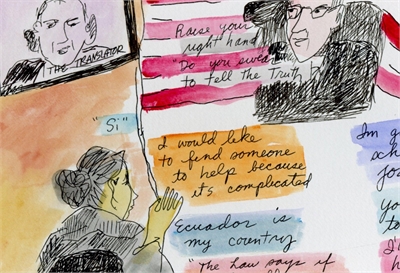 THE TRANSLATOR
Raise your
right hand
"Do you swear
to tell the Truth
"Si"
I would like
to find someone
to help because
it's complicated
Ecuador is
my country
"The Law says if
Im g
sch
you
to
I'